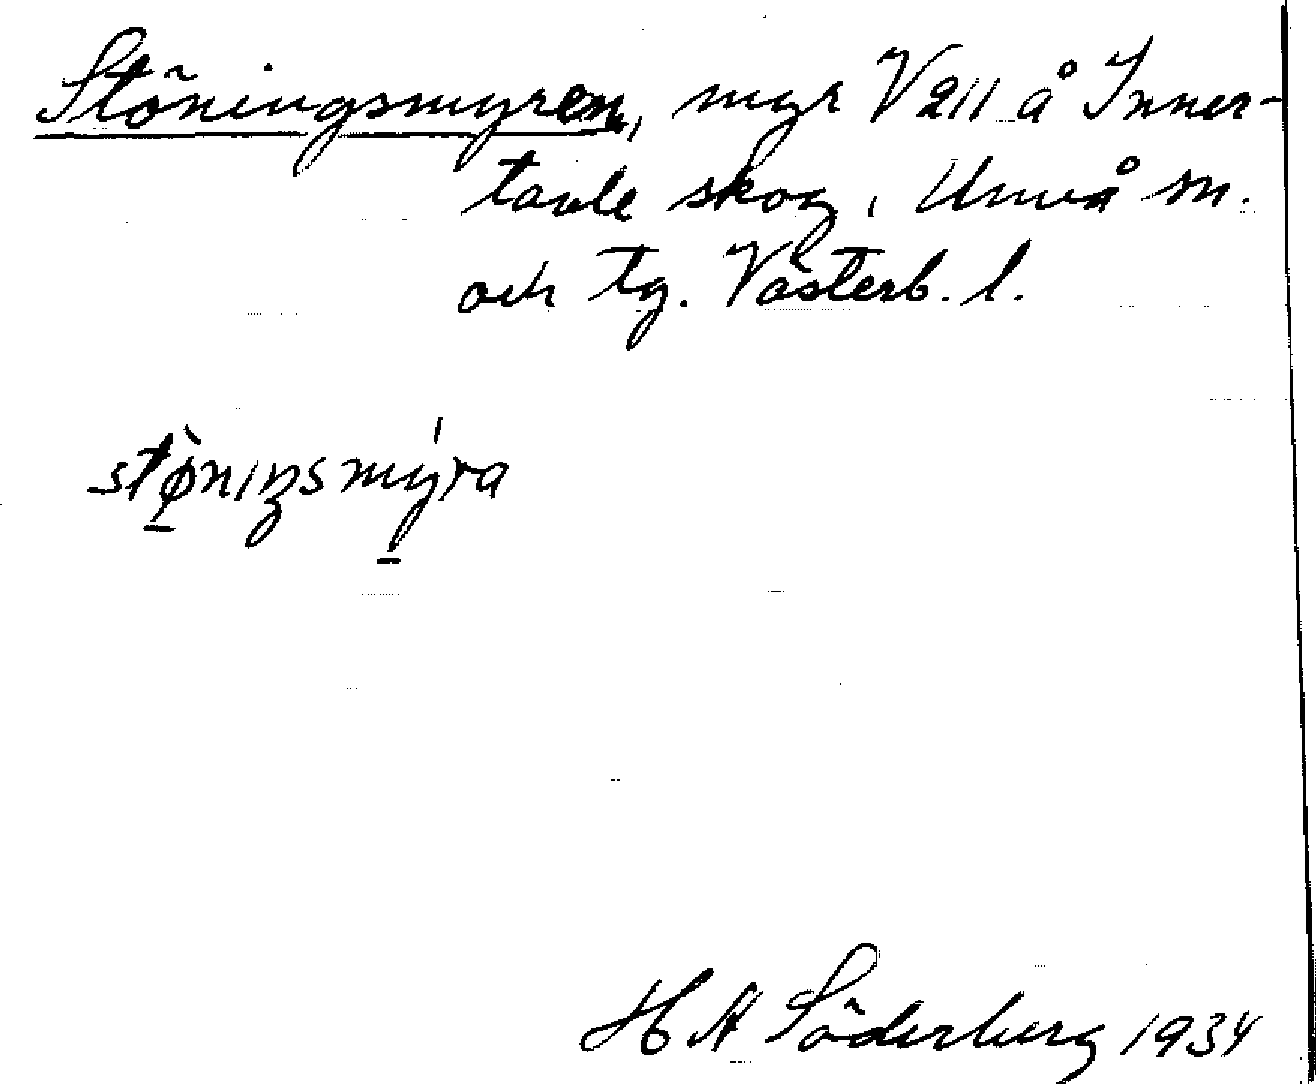 Störningsmyren, myr V 211 å Inner-
tavle skog, Umeå sn.
och tg. Västerb. l.
stø̀niŋsmýra
H A Söderberg 1934